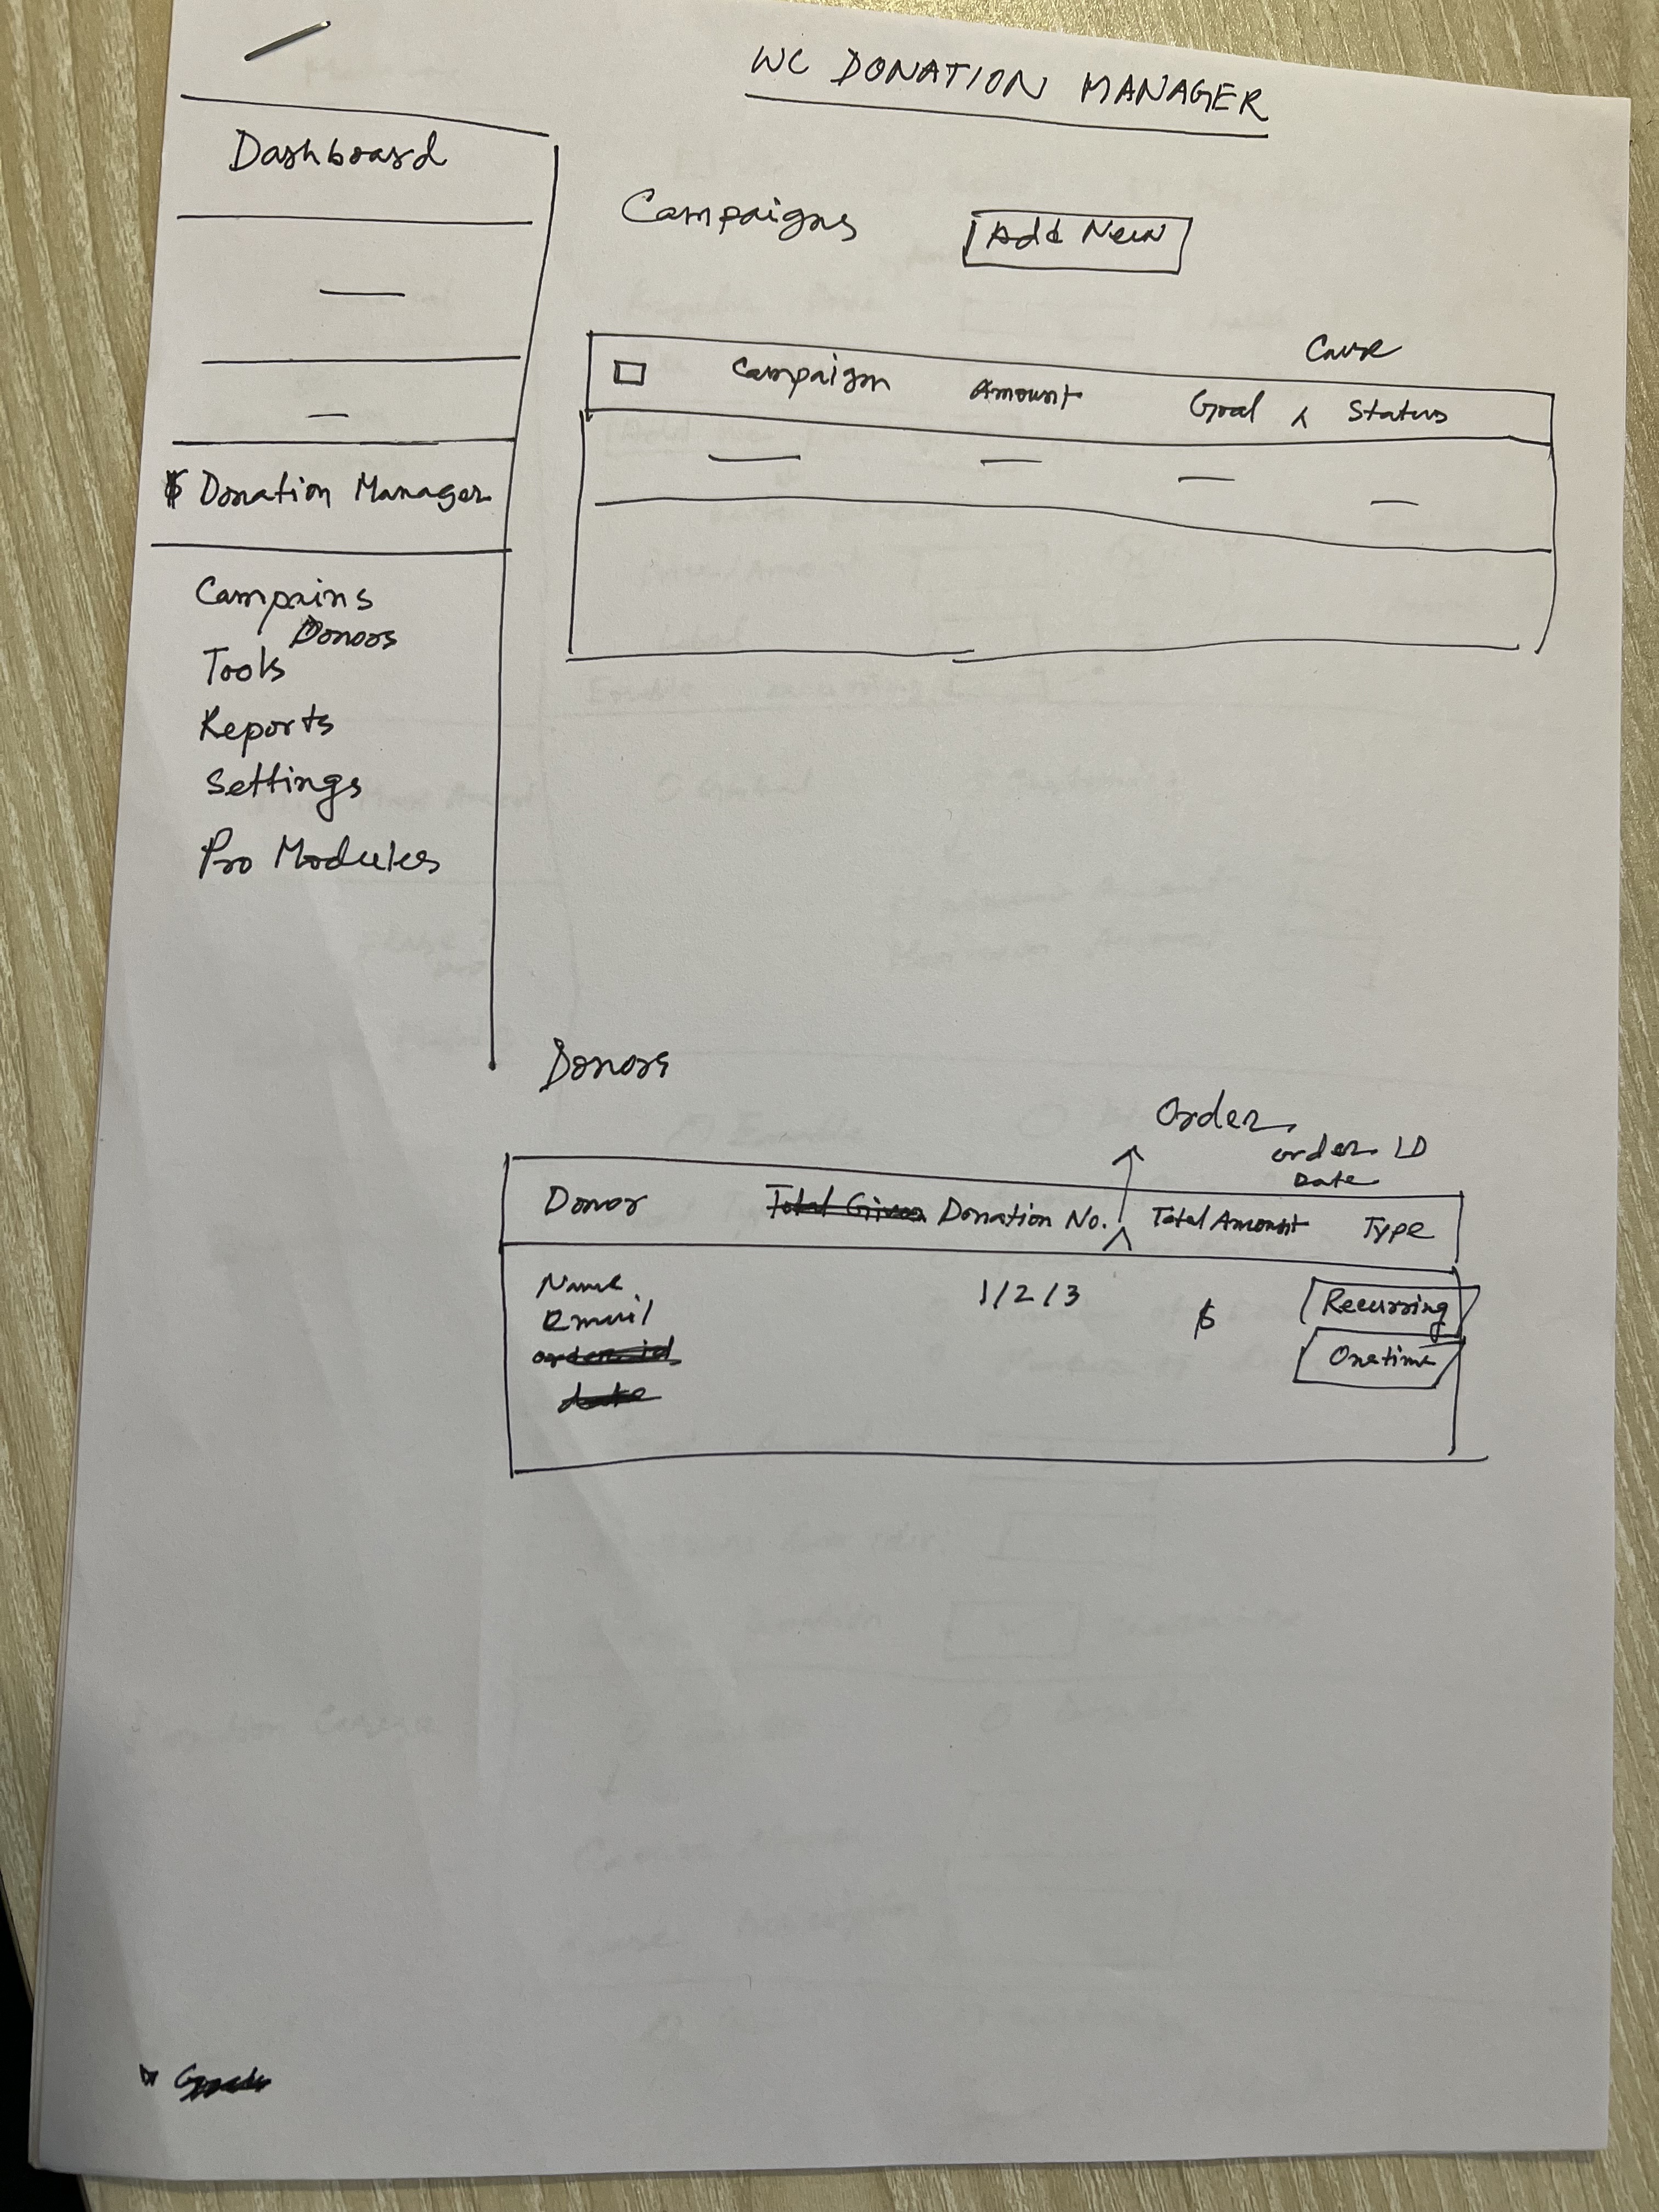 WC DONATION MANAGER
Dashboard
$ Donation Manager
Campains
Donors
Tools
Reports
Settings
Pro Modules
Campaigns
Add New
Cause
Campaign Amount Goal ^ Status
Donors
Order
order ID
Date
Donor Total Given Donation No. ^ Total Amount Type
Name 1/2/3 $ Recurring
Email Onetime
order id
date